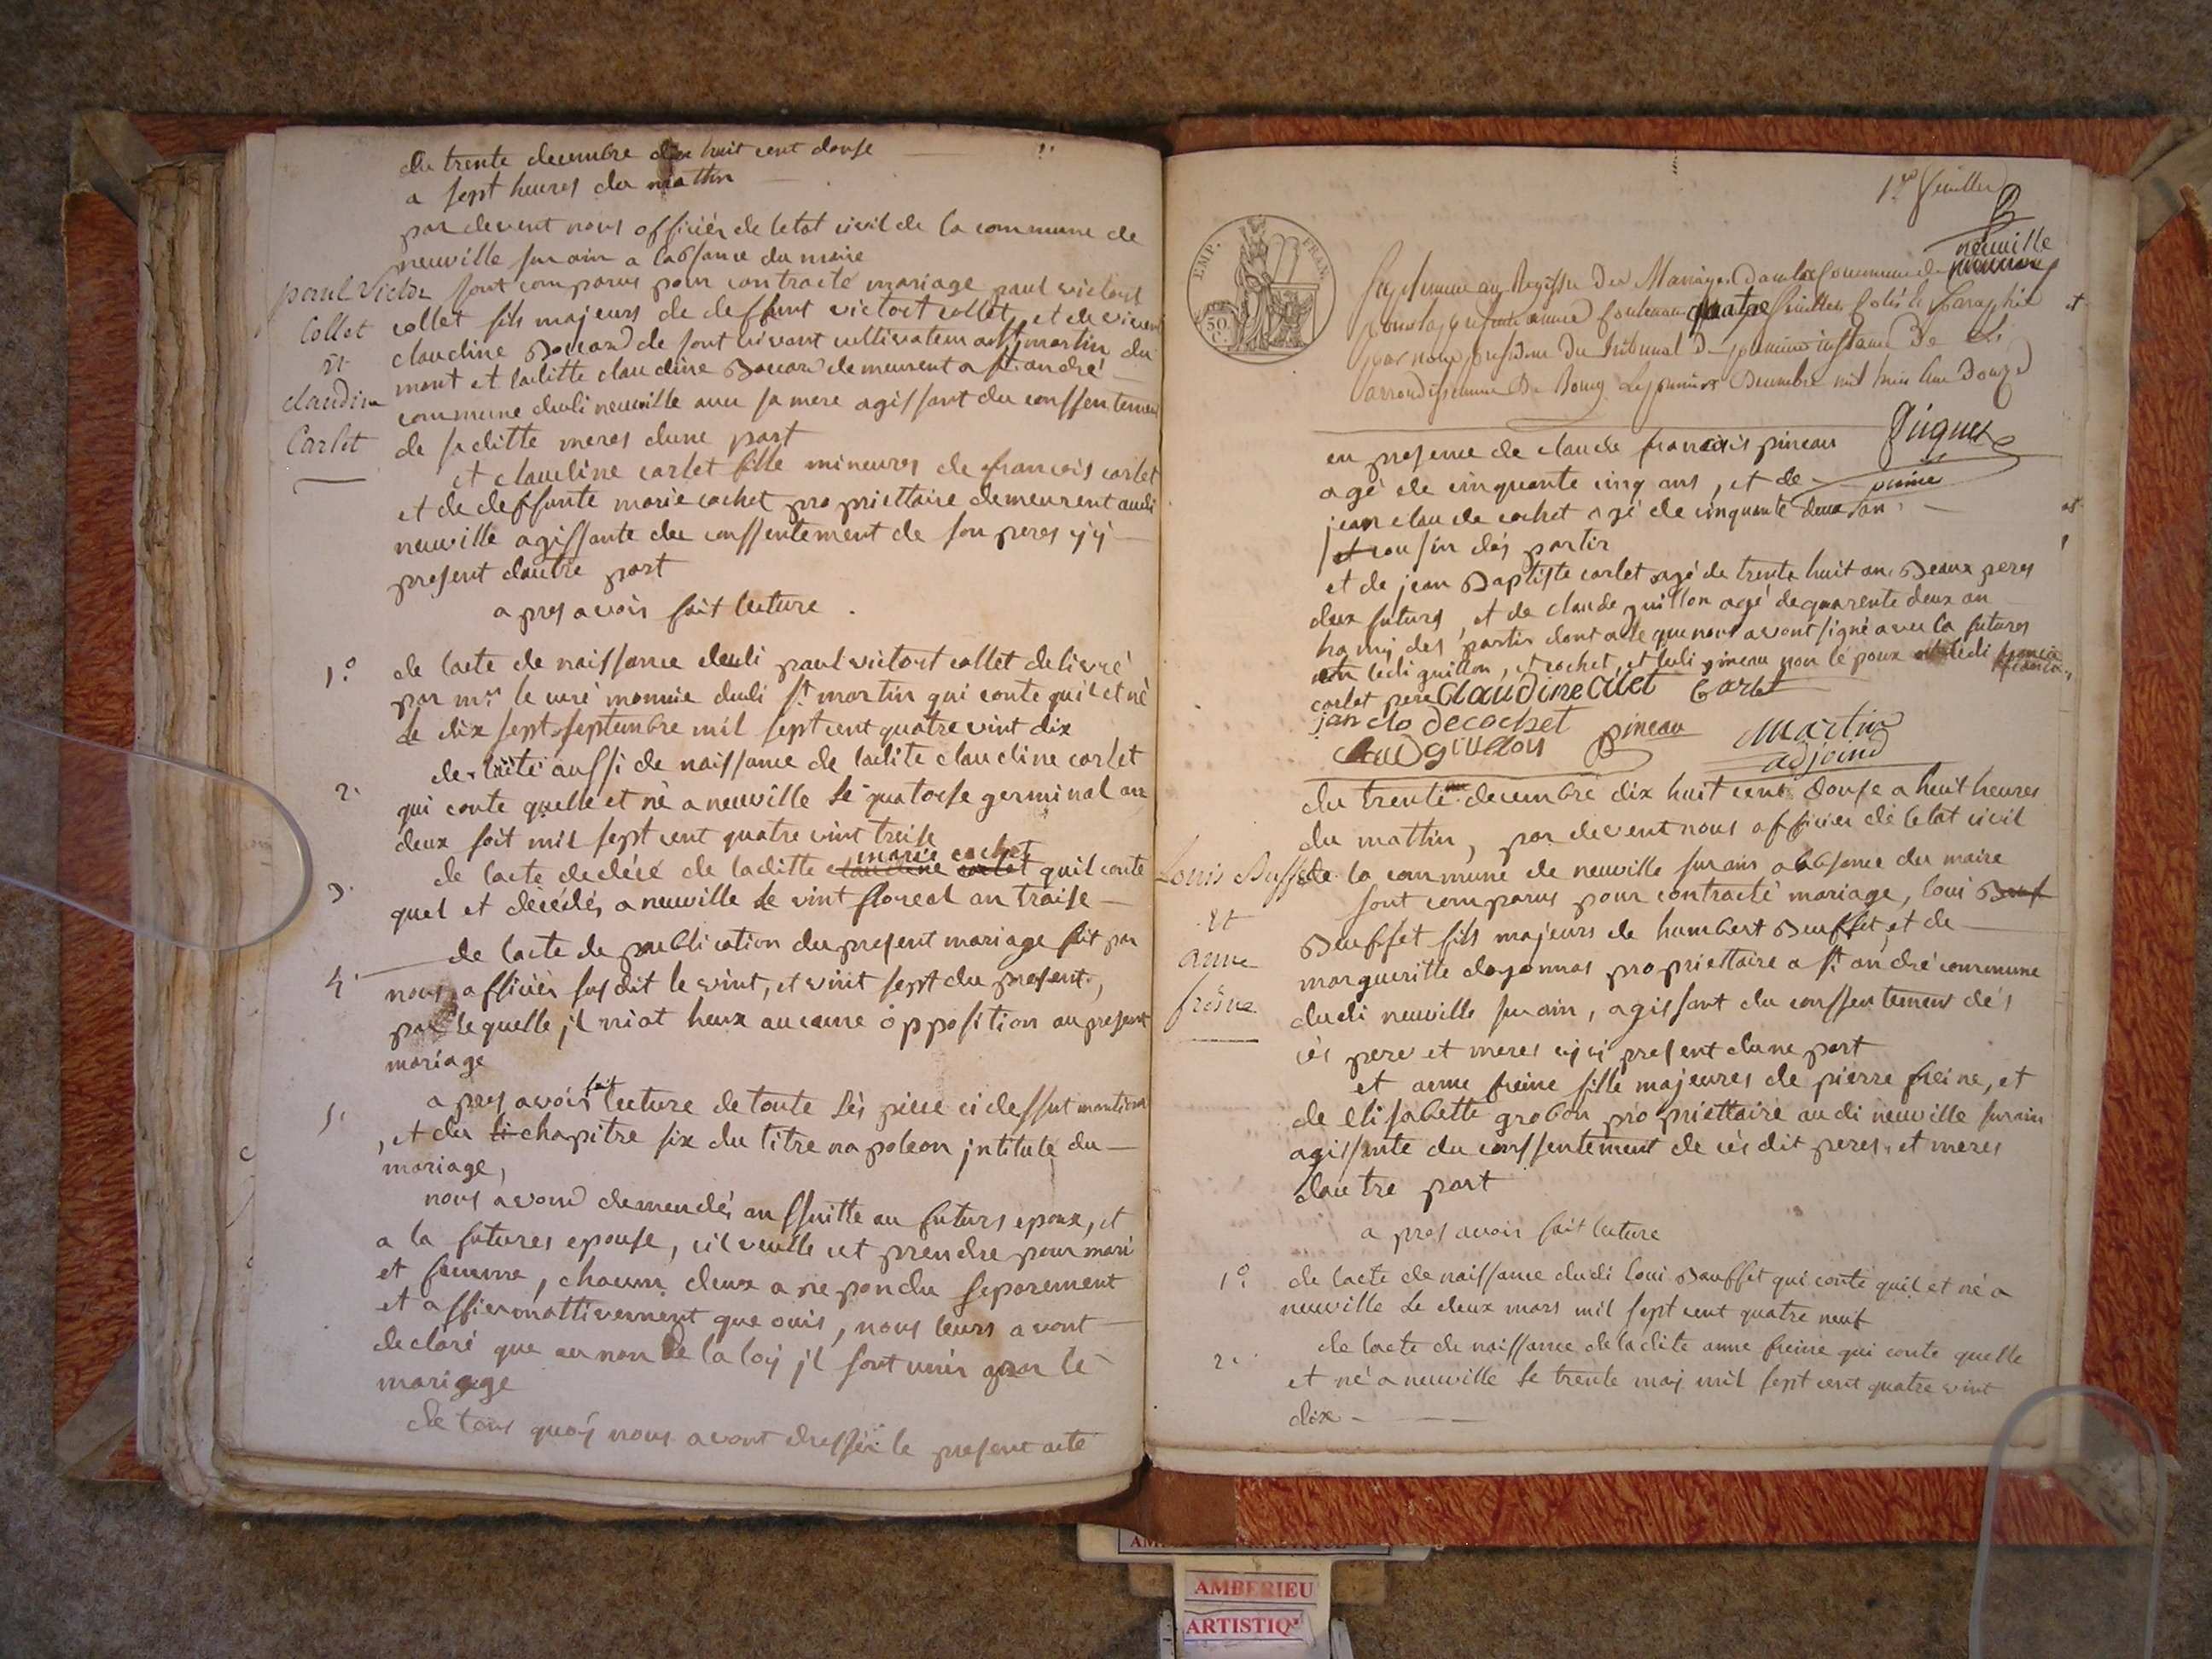 du trente decembre dix huit cent douse
a sept heures du mattin
par devent nous officiér de letat civil de la commune de
neuville sur ain a labsance du maire
paul victor
Collet
et
claudine
Carlet
sont comparus pour contracté mariage paul victort
collet fils majeurs de deffunt victort collet, et de
claudine de sont vivant cultivateur a st martin du
mont et laditte claudine demeurent a st. andré
commune dudi neuville avec sa mere agissant du conssentement
de saditte meres dune part
et claudine carlet fille mineures de francois carlet
et de deffunte marie cochet propriettaire demeurent audi
neuville agissante du conssentement de son peres yÿ
present dautre part
apres avoir fait lecture .
1.° de lacte de naissance dudi paul victort collet delivré
par mr. le curé monnié dudi st. martin qui conte quil et né
le dix sept septembre mil sept cent quatre vint dix
2. de lacte aussi de naissance de ladite claudine carlet
qui conte quelle et né a neuville le quatorse germinal an
deux soit mil sept cent quatre vint treise
3. de lacte de décé de laditte claudine carlet marie cochet quil conte
quel et décédés a neuville le vint floreal an traise
4. de lacte de publication du present mariage fait par
nous officiér sus dit le vint, et vint sept du present,
par lequelle jl niat heux aucune opposition au present
mariage
5. apres avoir fait lecture de toute lés piece ci dessut
, et du li chapitre six du titre napoleon jntitulé du
mariage,
nous avond demendés an ssuitte au futurs epoux, et
a la futures epouse, cil veulle cet prendre pour mari
et femme, chacun deux a repondu separement
et affiermattivement que ouis, nous leurs avont
declaré que au non de la loy jl sont unis par le
mariage
de tous quoÿ nous avont dressér le present acte
1er. feuillet
EMP. FRAN.
50 C.
neuville
Registre des Mariages dans la Commune de
quatre feuillets
par nous president du tribunal de premiere instance de
arrondissement de Bourg le premier Decembre mil huit cent Douze
Piquet
en presence de claude francois pineau
agé de cinquante cinq ans, et de
jean claude cochet agé de cinquante deux an
et cousin dés partir
et de jean Baptiste carlet agé de trente huit an Beaux peres
deux futurs, et de claude guillon agé de quarente deux an
hamÿ des partir dont acte que nous avont signé avec la futures
ledi guillon, et cochet, et ledi pineau non lé poux ledi francois
carlet pere Claudine Carlet Carlet
jan clo de cochet pineau martin
Claud guillon adjoind
du trente decembre dix huit cent douse a huit heures
du mattin, par devent nous officier dé letat civil
Louis Buffet
et
anne
freine
de la commune de neuville sur ain a labsance du maire
sont comparus pour contracté mariage, loui Beuf
Beuffet fils majeurs de humbert Beuffet, et de
margueritte doyonnas propriettaire a st. andré commune
dudi neuville sur ain, agissant du conssentement dés
cés pere et meres yÿ present dune part
et anne freine fille majeures de pierre freine, et
de elisabette grobon propriettaire au di neuville sur ain
agissante du conssentement de cés dit peres, et meres
dautre part
apres avoir fait lecture
1.° de lacte de naissance dudi loui Bauffet qui conte quil et né a
neuville le deux mars mil sept cent quatre neuf
2. de lacte de naissance de ladite anne freine qui conte quelle
et né a neuville le trente maÿ mil sept cent quatre vint
dix
AMBERIEU
ARTISTIQ